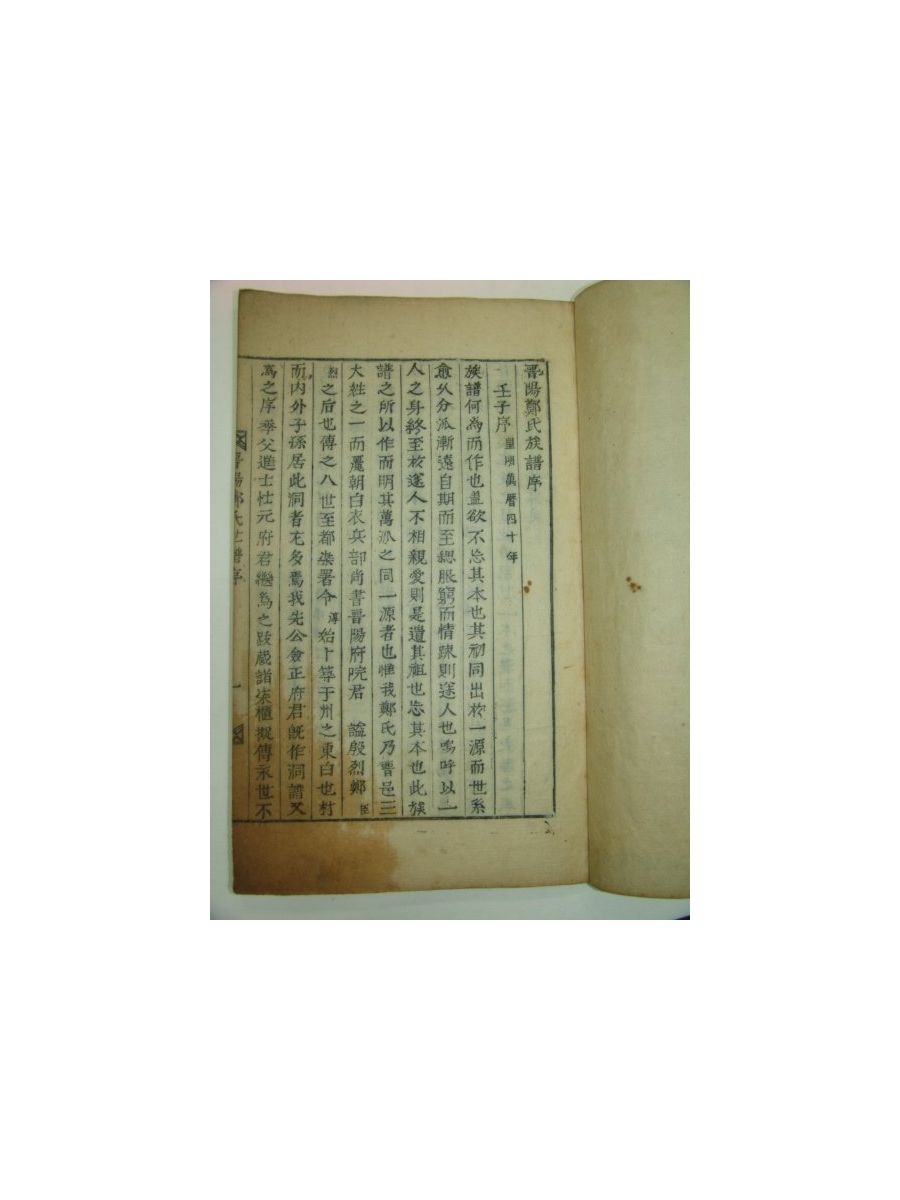 晋陽鄭氏族譜序
壬子序 皇明萬曆四十年
族譜何為而作也盖欲不忘其本也其初同出於一源而世系
愈久分派漸遠自期而至緦服窮而情踈則途人也嗚呼以一
人之身終至於途人不相親愛則是遺其祖也忘其本也此族
譜之所以作而明其萬派之同一源者也惟我鄭氏乃晋邑三
大姓之一而麗朝白衣兵部尚書晋陽府院君 謚殷烈鄭臣
烈之后也傳之八世至都染署令淳始卜築于州之東白也村
而内外子孫居此洞者尤多焉我先公僉正府君旣作洞譜又
為之序季父進士仕元府君継為之跋藏諸柒樻擬傳永世不
晋陽鄭氏世譜序
一